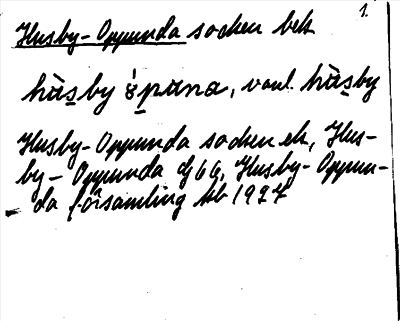 1.
Husby-Oppunda socken bek
hùs̱by ò̱puna, vanl. hùs̱by
Husby-Oppunda socken ek, Hus-
by- Oppunda dj 66, Husby- Oppun-
da församling kb 1927